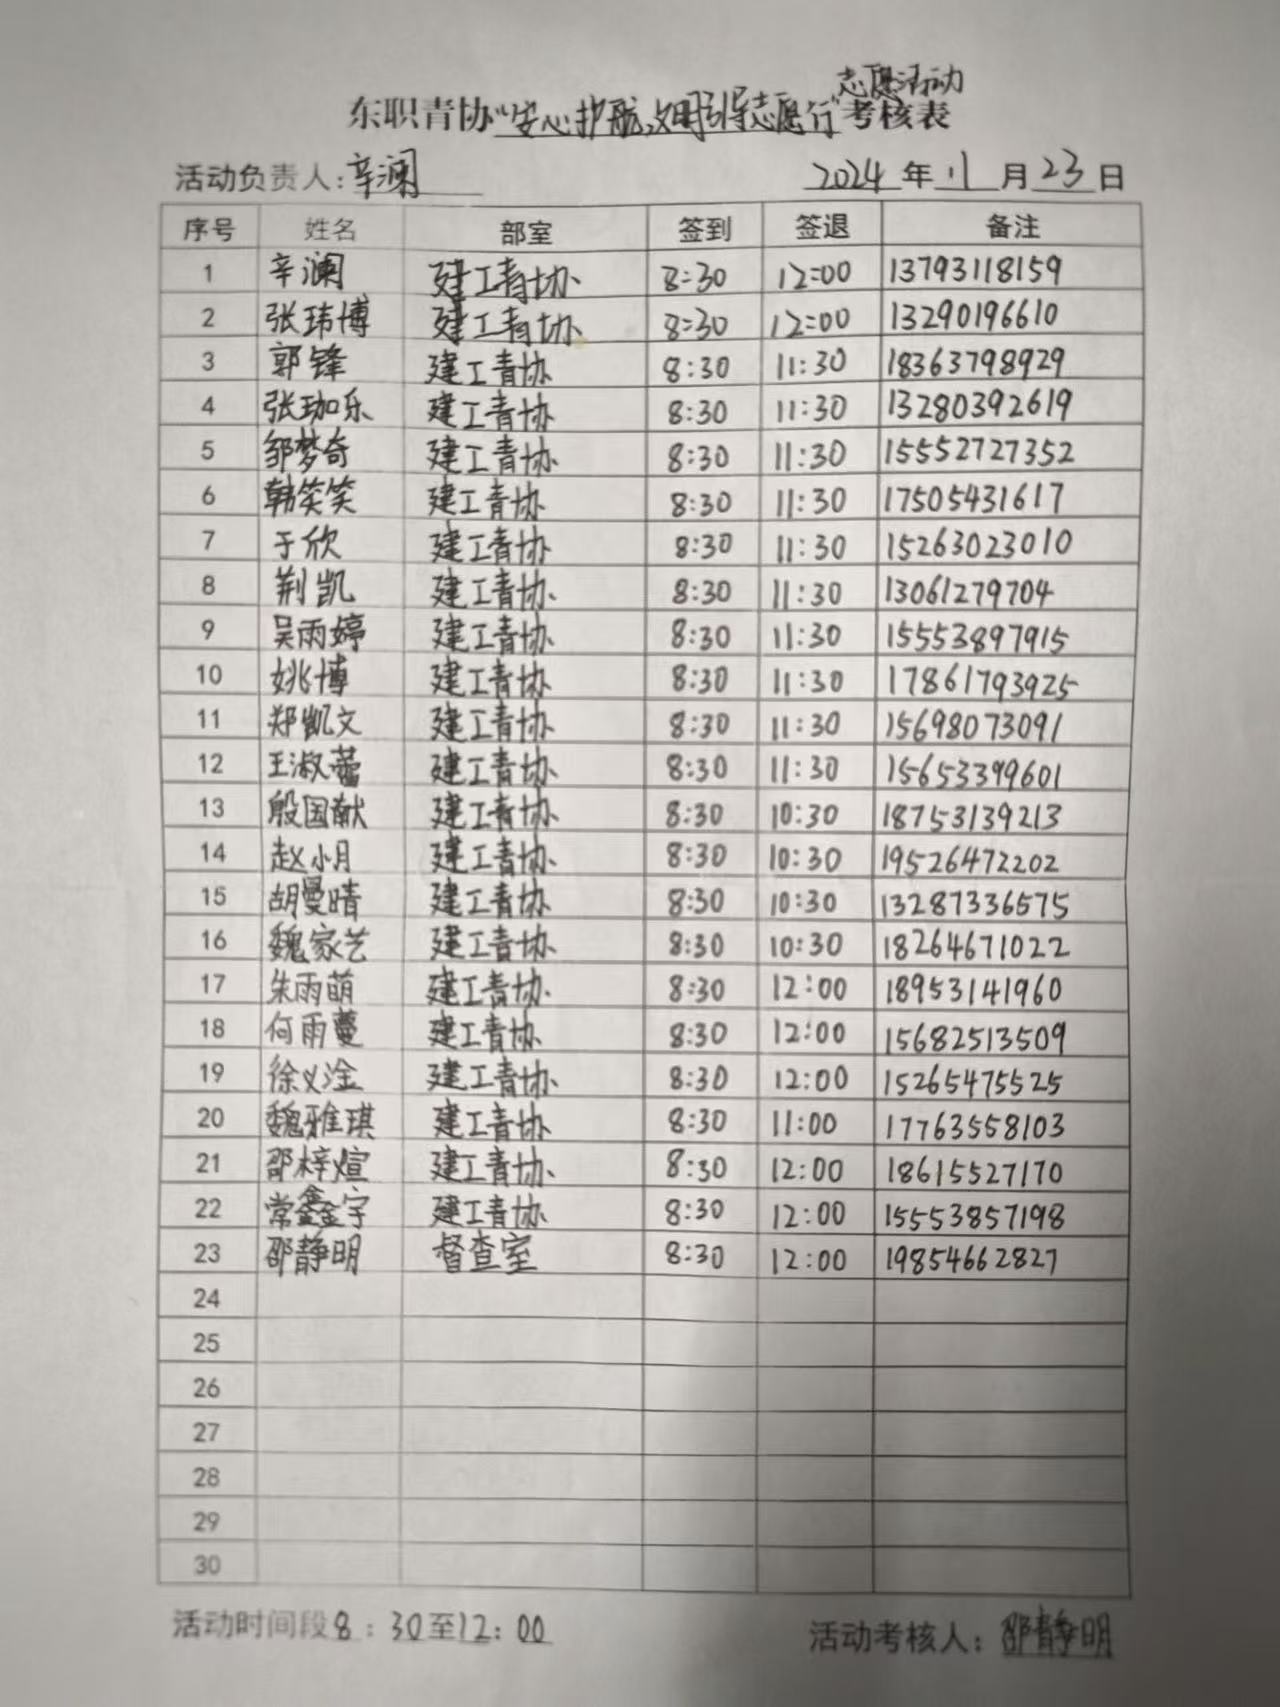 志愿活动
东职青协“安心护航,文明引导志愿行”考核表
活动负责人:辛澜 2024年11月23日
序号 姓名 部室 签到 签退 备注
1 辛澜 建工青协 8:30 12:00 13793118159
2 张玮博 建工青协 8:30 12:00 13290196610
3 郭锋 建工青协 8:30 11:30 18363798929
4 张珈乐 建工青协 8:30 11:30 13280392619
5 邹梦奇 建工青协 8:30 11:30 15552727352
6 韩笑笑 建工青协 8:30 11:30 17505431617
7 于欣 建工青协 8:30 11:30 15263023010
8 荆凯 建工青协 8:30 11:30 13061279704
9 吴雨婷 建工青协 8:30 11:30 15553897915
10 姚博 建工青协 8:30 11:30 17861793925
11 郑凯文 建工青协 8:30 11:30 15698073091
12 王淑蕾 建工青协 8:30 11:30 15653399601
13 殷国献 建工青协 8:30 10:30 18753139213
14 赵小月 建工青协 8:30 10:30 19526472202
15 胡曼晴 建工青协 8:30 10:30 13287336575
16 魏家艺 建工青协 8:30 10:30 18264671022
17 朱雨萌 建工青协 8:30 12:00 18953141960
18 何雨蔓 建工青协 8:30 12:00 15682513509
19 徐义淦 建工青协 8:30 12:00 15265475525
20 魏雅琪 建工青协 8:30 11:00 17763558103
21 邵梓煊 建工青协 8:30 12:00 18615527170
22 常鑫宇 建工青协 8:30 12:00 15553857198
23 邵静明 督查室 8:30 12:00 19854662827
24
25
26
27
28
29
30
活动时间段8:30至12:00 活动考核人:邵静明